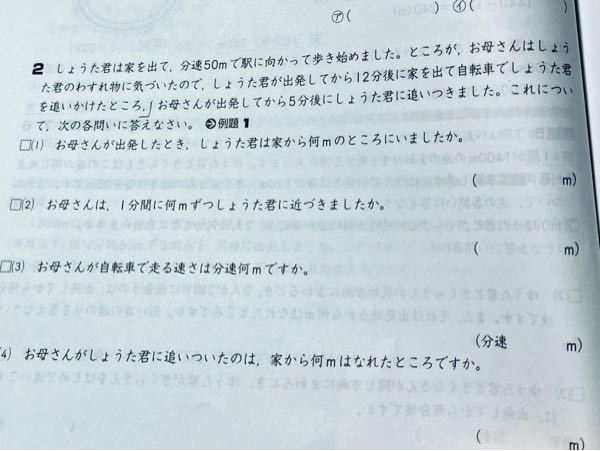 ㋐( ) ㋑(
2 しょうた君は家を出て，分速50mで駅に向かって歩き始めました。ところが，お母さんはしょう
た君のわすれ物に気づいたので，しょうた君が出発してから12分後に家を出て自転車でしょうた君
を追いかけたところ，お母さんが出発してから5分後にしょうた君に追いつきました。これについ
て，次の各問いに答えなさい。 例題1
□(1) お母さんが出発したとき，しょうた君は家から何mのところにいましたか。
( m)
□(2) お母さんは，1分間に何mずつしょうた君に近づきましたか。
( m)
□(3) お母さんが自転車で走る速さは分速何mですか。
(分速 m)
(4) お母さんがしょうた君に追いついたのは，家から何mはなれたところですか。
( m)